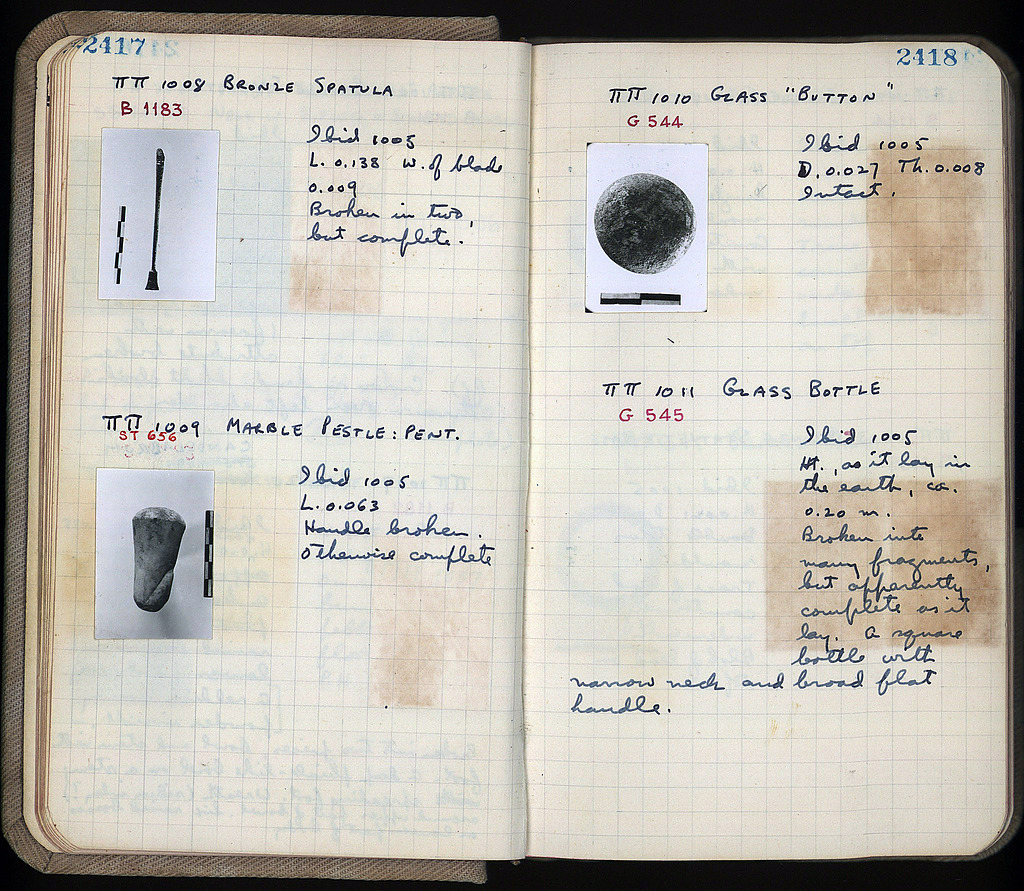 2417
ΠΠ 1008 BRONZE SPATULA
B 1183
Ibid 1005
L. 0.138 W. of blade
0.009
Broken in two,
but complete.
ΠΠ 1009 MARBLE PESTLE: PENT.
ST 656
Ibid 1005
L. 0.063
Handle broken.
Otherwise complete
2418
ΠΠ 1010 GLASS "BUTTON"
G 544
Ibid 1005
D. 0.027 Th. 0.008
Intact.
ΠΠ 1011 GLASS BOTTLE
G 545
Ibid 1005
Ht., as it lay in
the earth, ca.
0.20 m.
Broken into
many fragments,
but apparently
complete as it
lay. A square
bottle with
narrow neck and broad flat
handle.